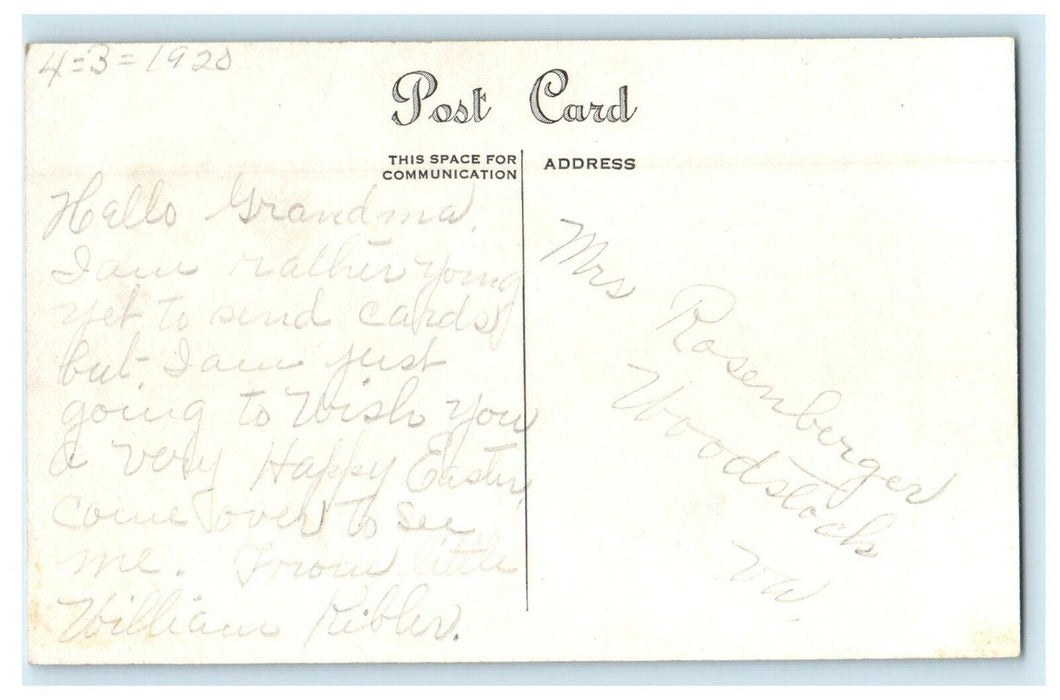 4=3=1920
Post Card
THIS SPACE FOR
COMMUNICATION
ADDRESS
Hello Grandma.
I am rather young
yet to send cards
but. I am just
going to Wish you
a very Happy Easter,
come over to see
me. From little
William Kibler.
Mrs Rosenberger
Woodstock
Va